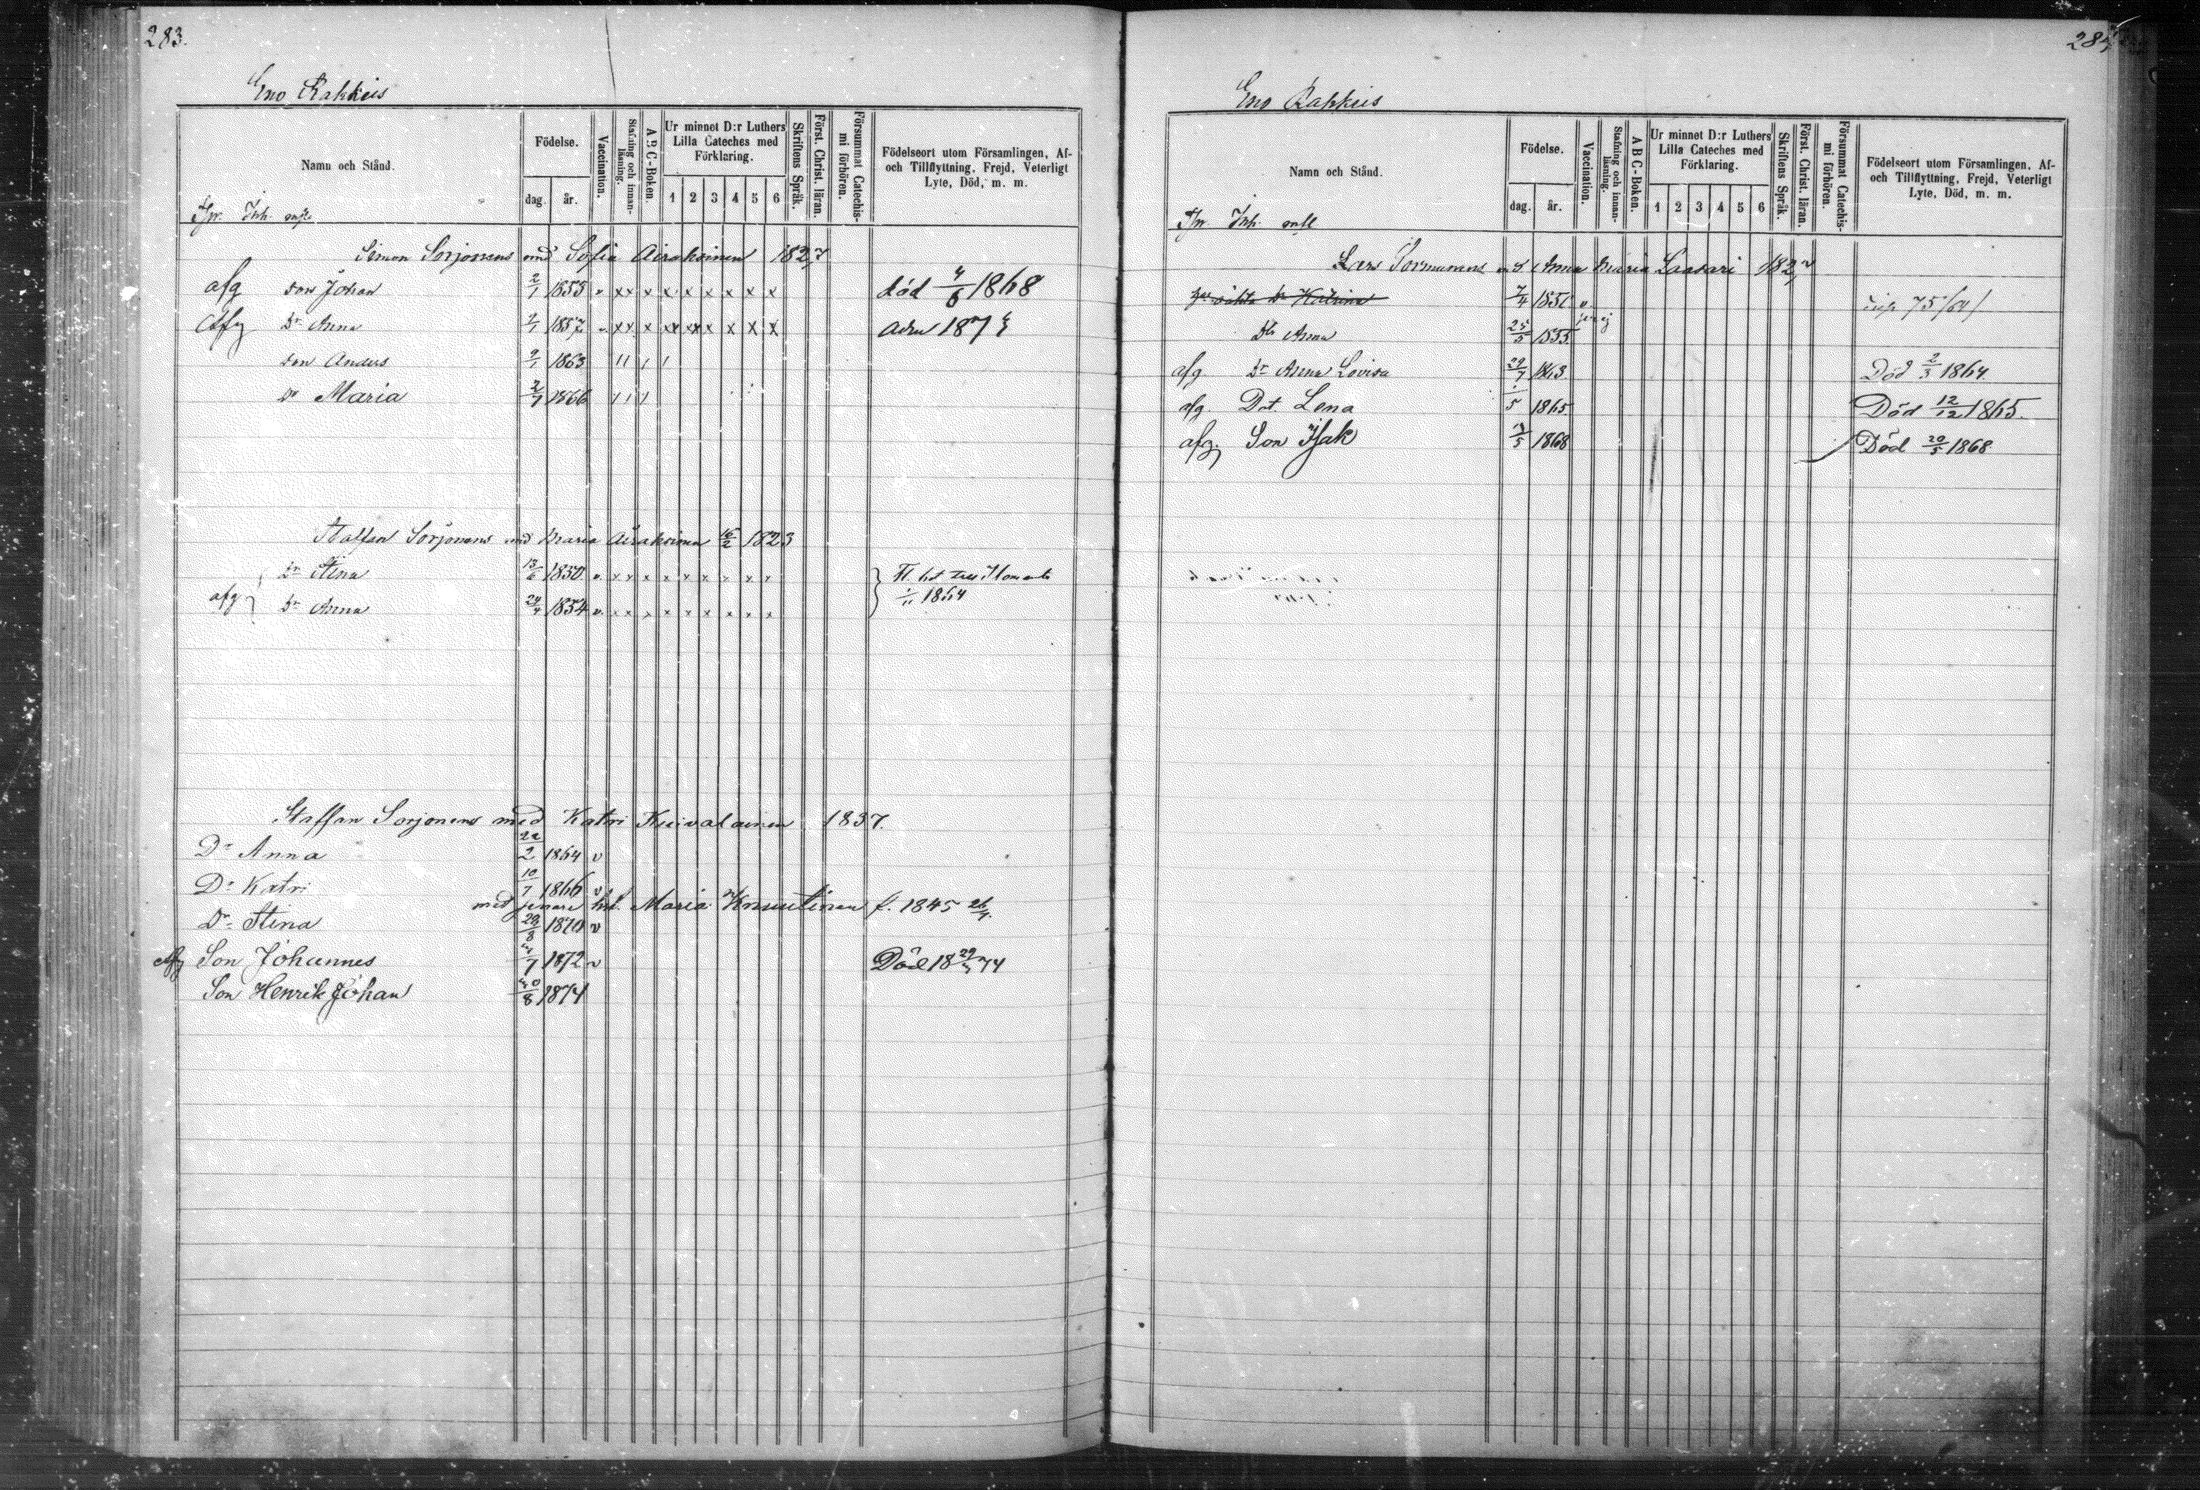 283.
Eno Rakkeis
Namn och Stånd.
Födelse.
dag. år.
Vaccination.
Stafning och innanläsning.
ABC-Boken.
Ur minnet D:r Luthers Lilla Cateches med Förklaring.
1 2 3 4 5 6
Skriftens Språk.
Först. Christ. läran.
Försummat Catechismi förhören.
Födelseort utom Församlingen, Af- och Tillflyttning, Frejd, Veterligt Lyte, Död, m. m.
Inh.
Simon Sorjonens med Sofia Airaksinen 1827
afg Son Johan 2/1 1855 v x x x x x x x x x död 4/6 1868
Afg Dr Anna 2/1 1857 v x x x x x x x x x 187
Son Anders 2/1 1863
Dr Maria 2/7 1866
Staffan Sorjonens med Maria Airaksinen 1823
Dr Stina 13/6 1850 v x x x x x x x x x
afg Dr Anna 24/4 1854 v x x x x x x x x x 1864
Staffan Sorjonens med Katri Kuivalainen 1837.
Dr Anna 22/2 1864 v
Dr Katri 10/7 1866 v
med senare hst. Maria Knuutinen f. 1845 26/4.
Dr Stina 29/8 1870 v
Afg Son Johannes 7 1872 v Död 18 29/3 74
Son Henrik Johan 8 1874
Eno Rakkeis
Namn och Stånd.
Födelse.
dag. år.
Vaccination.
Stafning och innanläsning.
ABC-Boken.
Ur minnet D:r Luthers Lilla Cateches med Förklaring.
1 2 3 4 5 6
Skriftens Språk.
Först. Christ. läran.
Försummat Catechismi förhören.
Födelseort utom Församlingen, Af- och Tillflyttning, Frejd, Veterligt Lyte, Död, m. m.
Inh.
Lars Tormunens Anna Maria Laasari 182
oäkta Dr Katrina 7/4 1851 v
Dr Anna 25/5 1855
afg. Dr Anna Lovisa 29/7 1863 Död 2/3 1864.
afg. Dot. Lena 5 1865 Död 12/12 1865.
afg. Son Isak 5 1868 Död 20/5 1868